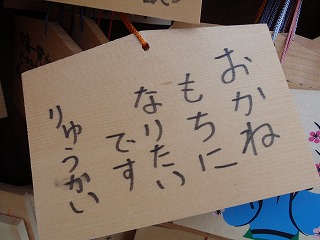 おかね
もちに
なりたい
です
りゅうかい